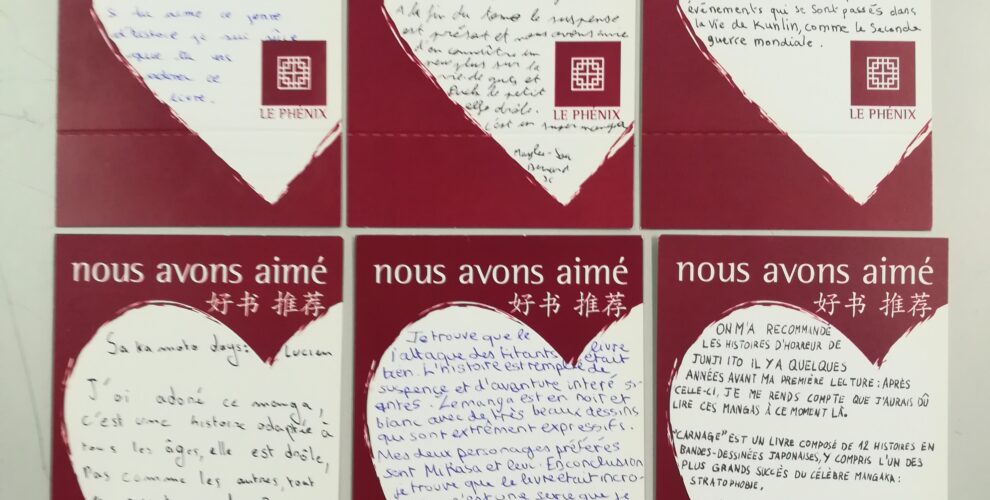 si tu aime ce genre
d'histoire je suis sûre
que tu vas
adorer ce
livre.
LE PHÉNIX
à la fin du tome le suspense
est présent et nous avons envie
d'en connaître un
peu plus sur la
vie de
le petit
elfe drôle.
c'est un super manga
LE PHÉNIX
événements qui se sont passés dans
la vie de Kunlin, comme la Seconde
guerre mondiale.
LE PHÉNIX
nous avons aimé
好书 推荐
Sakamoto days: Lucien
J'ai adoré ce manga,
c'est une histoire adaptée à
tous les âges, elle est drôle,
pas comme les autres, tout
nous avons aimé
好书 推荐
Je trouve que le livre
l'attaque des titants était
bien. L'histoire est remplie de
suspence et d'avanture interé
santes. Le manga est en noir et
blanc avec de très beaux dessins
qui sont extrêment expressifs.
Mes deux personages préférés
sont Mikasa et levi. En conclusion
je trouve que le livre était incro-
c'est une serie que je
nous avons aimé
好书 推荐
ON M'A RECOMMANDÉ
LES HISTOIRES D'HORREUR DE
JUNJI ITO IL Y A QUELQUES
ANNÉES AVANT MA PREMIÈRE LECTURE ; APRÈS
CELLE-CI, JE ME RENDS COMPTE QUE J'AURAIS DÛ
LIRE CES MANGAS À CE MOMENT LÀ.
"CARNAGE" EST UN LIVRE COMPOSÉ DE 12 HISTOIRES EN
BANDES-DESSINÉES JAPONAISES, Y COMPRIS L'UN DES
PLUS GRANDS SUCCÈS DU CÉLÈBRE MANGAKA :
STRATOPHOBIE.